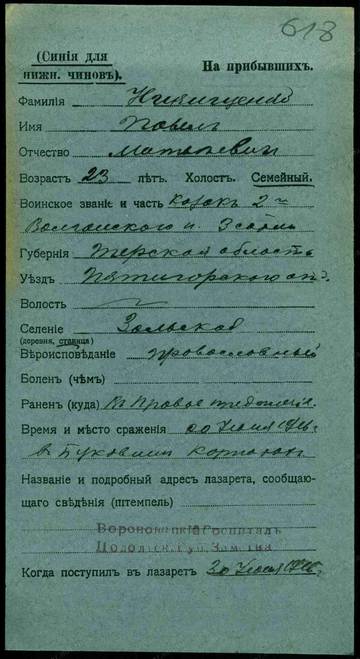 618
(Синія для
нижн. чиновъ).
На прибывшихъ.
Фамилія
Имя Павелъ
Отчество Матвѣевич
Возрастъ 23 лѣтъ. Холост. Семейный.
Воинское званіе и часть Козакъ 2го
Волгскаго п. 3 сотни
Губернія Терская область
Уѣздъ Пятигорскаго от.
Волость
Селеніе Зольская
(деревня, станица)
Вѣроисповѣданіе православный
Боленъ (чѣмъ)
Раненъ (куда) въ правое
Время и мѣсто сраженія Іюня 1916
в Буковинѣ
Названіе и подробный адресъ лазарета, сообщаю-
щаго свѣдѣнія (штемпель)
Вороновицкій Госпиталь
Подольск. Губ. Земства
Когда поступилъ въ лазаретъ 30 Іюня 1916